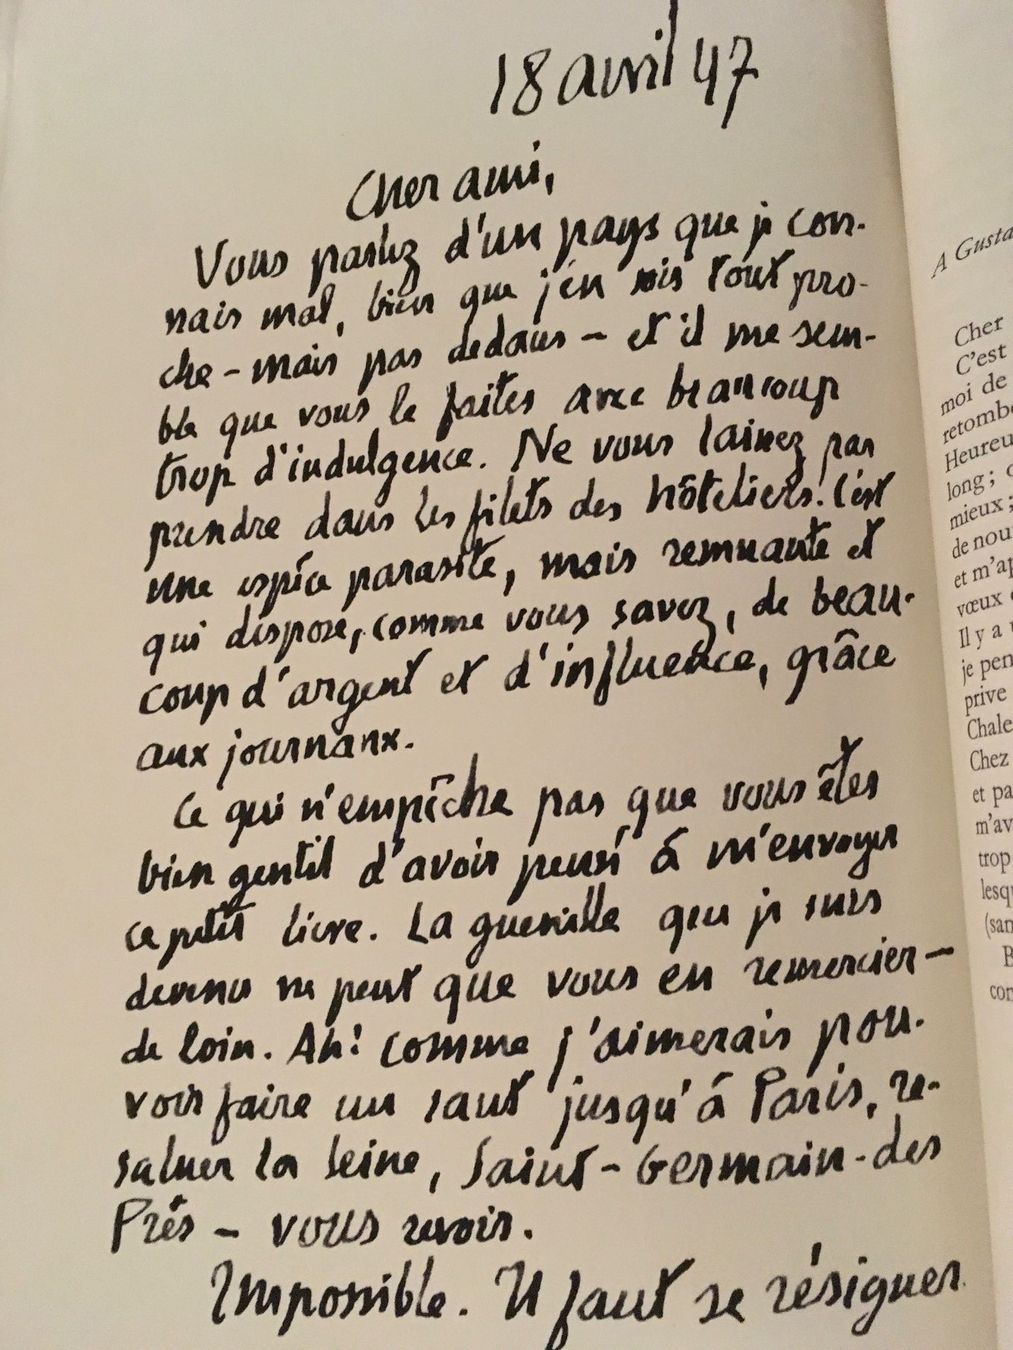 18 avril 47
Cher ami,
Vous parlez d'un pays que je con-
nais mal, bien que j'en sois tout pro-
che - mais pas dedans - et il me sem-
ble que vous le faites avec beaucoup
trop d'indulgence. Ne vous laissez pas
prendre dans les filets des hôteliers! C'est
une espèce parasite, mais remuante et
qui dispose, comme vous savez, de beau-
coup d'argent et d'influence, grâce
aux journaux.
Ce qui n'empêche pas que vous êtes
bien gentil d'avoir pensé à m'envoyer
ce petit livre. La guenille que je suis
devenu ne peut que vous en remercier -
de loin. Ah! comme j'aimerais pou-
voir faire un saut jusqu'à Paris, re-
saluer la Seine, Saint-Germain-des
Prés - vous revoir.
Impossible. Il faut se résigner
A Gusta
Cher
C'est
moi de
retombe
Heureu
long ;
mieux ;
de nou
et m'ap
vœux
Il y a
je pen
prive
Chale
Chez
et pa
m'av
trop
lesqu
(san
B
con